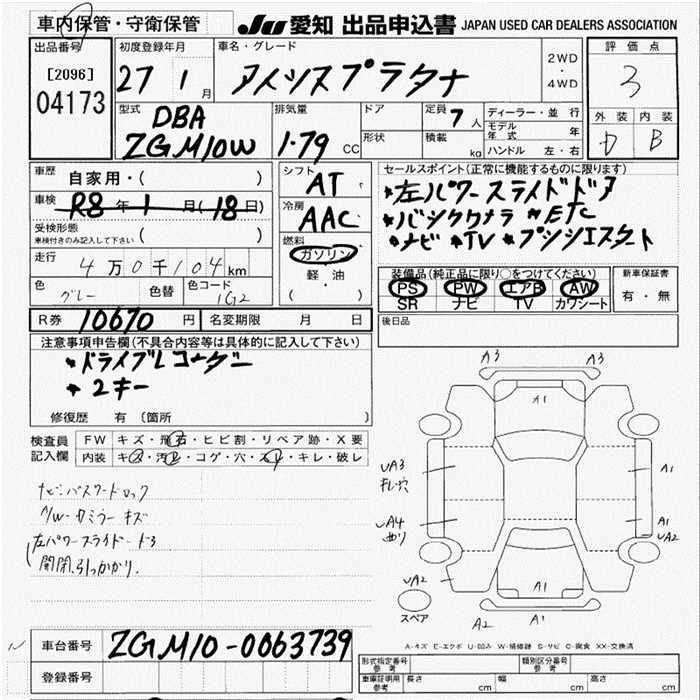 車内保管・守衛保管
JU 愛知 出品申込書 JAPAN USED CAR DEALERS ASSOCIATION
出品番号
[2096]
04173
初度登録年月
27 1 月
車名・グレード
アイシスプラタナ
2WD
・
4WD
評価点
3
外装 内装
D B
型式
DBA
ZGM10W
排気量
1.79 CC
ドア
形状
定員
7 人
積載
kg
ディーラー・並行
モデル年式 年
ハンドル 左・右
車歴
自家用・( )
車検
R8 年 1 月 (18日)
受検形態
車検付きのみ記入して下さい ( )
走行
4万0千104km
色
グレー
色替
色コード
1G2
シフト
AT
冷房
AAC
燃料
ガソリン
軽・油
( )
セールスポイント(正常に機能するものに限ります)
*左パワースライドドア
*バックカメラ *ETC
*ナビ *TV *プッシュスタート
装備品(純正品に限り○をつけてください)
PS PW エアB AW
SR ナビ TV カワシート
新車保証書
有・無
R券 10670 円
名変期限 月 日
後日品
注意事項申告欄(不具合内容等は具体的に記入して下さい)
*ドライブレコーダー
*2キー
修復歴 有 (箇所 )
検査員
記入欄
FW キズ・飛石・ヒビ割・リペア跡・X要
内装 キズ・汚れ・コゲ・穴・スレ・キレ・破レ
ナビパスワードロック
A/W・カミラーキズ
左パワースライドドア
開閉引っかかり.
A3 A3
A1
UA3
キレ穴
A1
UA4
曲り
A1
UA2
UA2
A1
スペア
A2 A1
A-キズ E-エクボ U-凹み W-補修跡 S-サビ C-腐食 XX-交換済
車台番号 ZGM10-0063739
登録番号
形式指定番号
参考
類別区分番号
参考
車庫証明用
参考
長さ cm 幅 cm 高さ cm